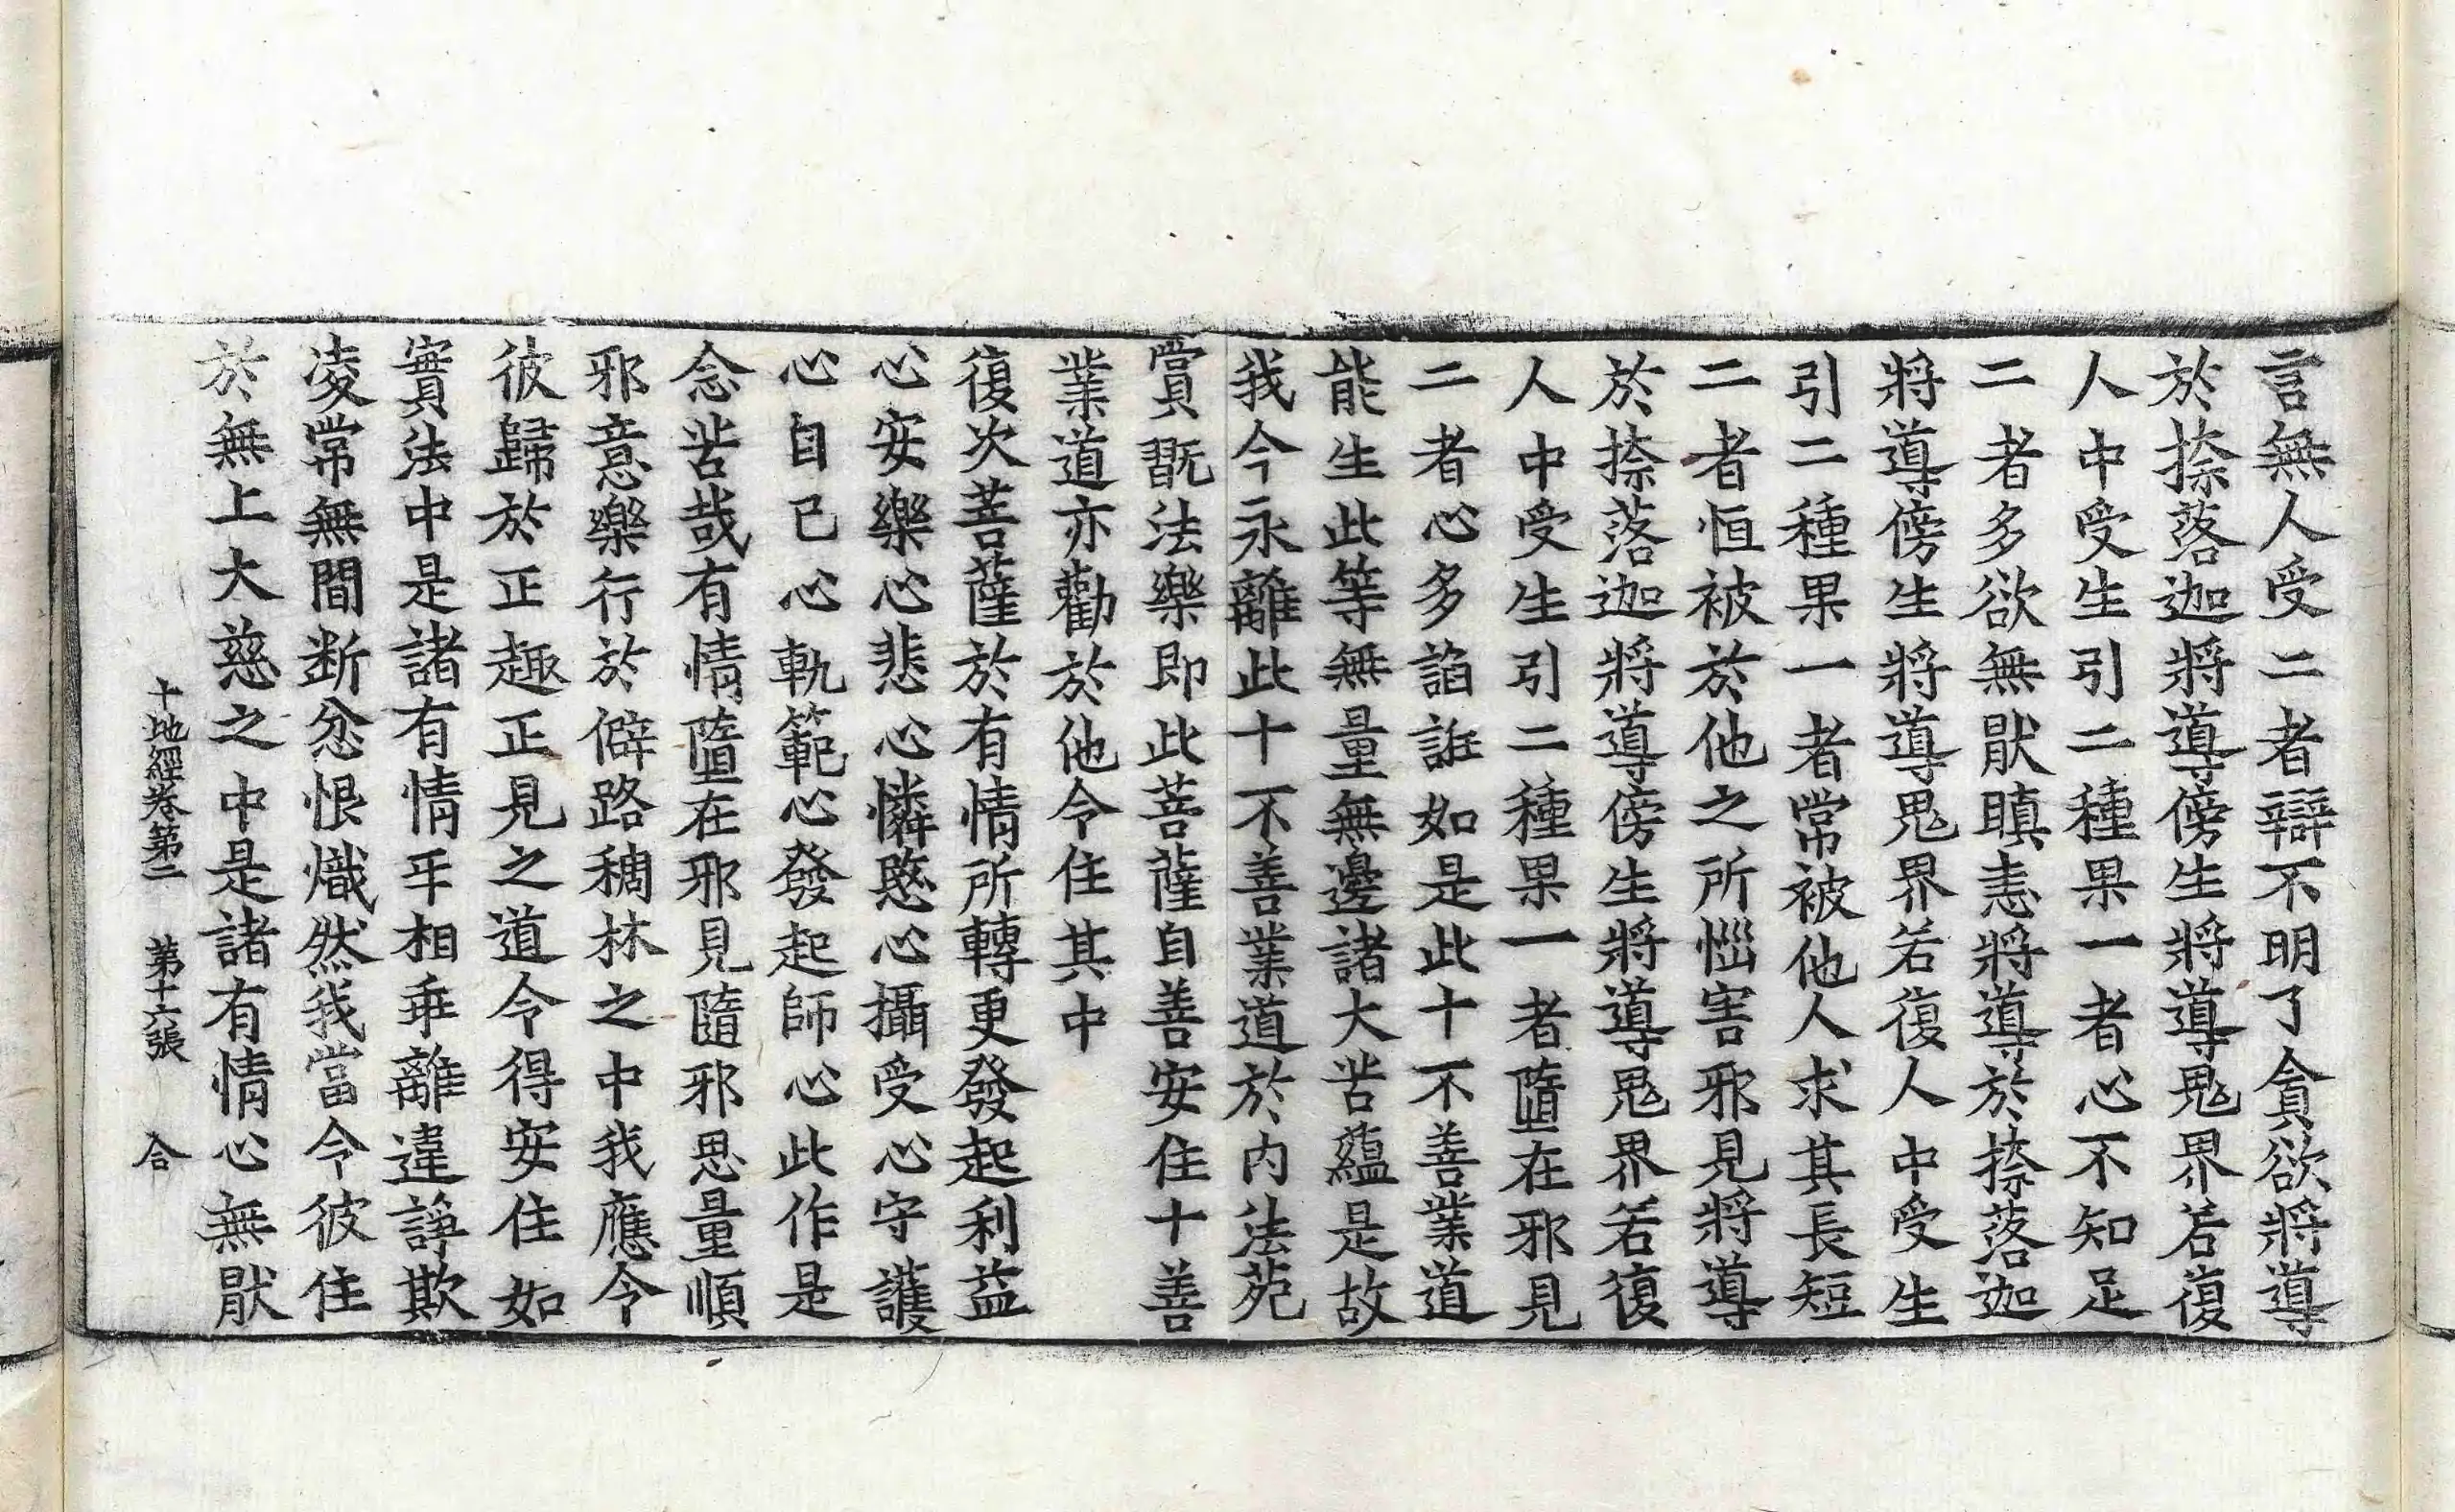 言無人受二者辯不明了貪欲將導
於捺落迦將導傍生將導鬼界若復
人中受生引二種果一者心不知足
二者多欲無猒瞋恚將導於捺落迦
將導傍生將導鬼界若復人中受生
引二種果一者常被他人求其長短
二者恒被於他之所惱害邪見將導
於捺落迦將導傍生將導鬼界若復
人中受生引二種果一者墮在邪見
二者心多諂誑如是此十不善業道
能生此等無量無邊諸大苦蘊是故
我今永離此十不善業道於內法苑
賞翫法樂即此菩薩自善安住十善
業道亦勸於他令住其中
復次菩薩於有情所轉更發起利益
心安樂心悲心憐愍心攝受心守護
心自己心軌範心發起師心此作是
念苦哉有情墮在邪見隨邪思量順
邪意樂行於僻路稠林之中我應令
彼歸於正趣正見之道令得安住如
實法中是諸有情互相乖離違諍欺
凌常無間斷忿恨熾然我當令彼住
於無上大慈之中是諸有情心無猒
十地經卷第二 第十六張 合